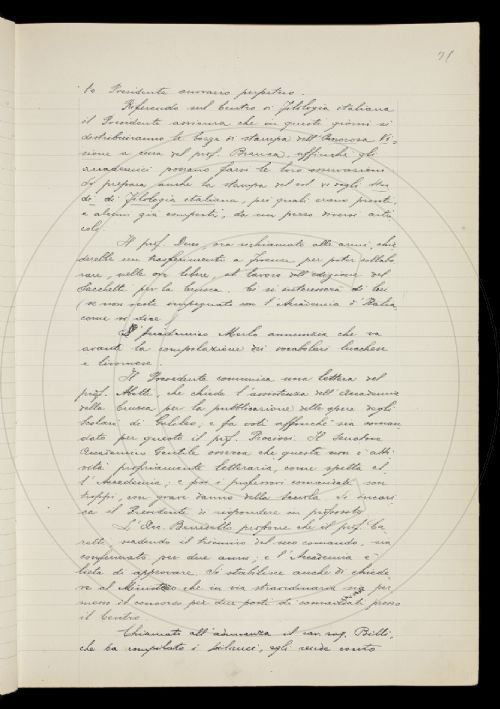 71
lo Presidente
Riferendo sul Centro di Filologia italiana
il Presidente assicura che in questi giorni si
distribuiranno le bozze di stampa dell'Amorosa Vi-
sione a cura del prof. Branca, affinché gli
accademici possano farvi le loro osservazioni.
Si prepara anche la stampa del vol. di degli Stu-
di di Filologia italiana, pei quali erano pronti,
e alcuni già composti, da un pezzo diversi arti
coli.
Il prof. Duro, ora richiamato alle armi, chie
derebbe un trasferimento a Firenze per poter collabo
rare, nelle ore libere, al lavoro dell'edizione del
Sacchetti per la Crusca. Ci si interesserà di lui
(se non resta impegnato con l'Accademia d'Italia,
come si dice.
L'Accademico Merlo annunzia che va
avanti la compilazione dei vocabolari lucchese
e livornese.
Il Presidente comunica una lettera del
prof. Abetti, che chiede l'assistenza dell'Accademia
della Crusca per la pubblicazione delle opere degli
Scolari di Galileo, e fa voti affinché sia coman
dato per questo il prof. Procissi. Il Senatore
Accademico Gentile osserva che questa non è atti
vità propriamente letteraria, come spetta al-
l'Accademia; e poi i professori comandati son
troppi, con grave danno della Scuola. Si incari
ca il Presidente di rispondere in proposito.
L'Acc. Benedetto propone che il prof. Ba
retti, scadendo il termine del suo comando, sia
confermato per due anni; e l'Accademia è
lieta di approvare. Si stabilisce anche di chiede
re al Ministro che in via straordinaria sia per
messo il concorso per due posti di comandati presso
il Centro.
Chiamato all'adunanza il rag. Billi,
che ha compilato i bilanci, egli rende conto